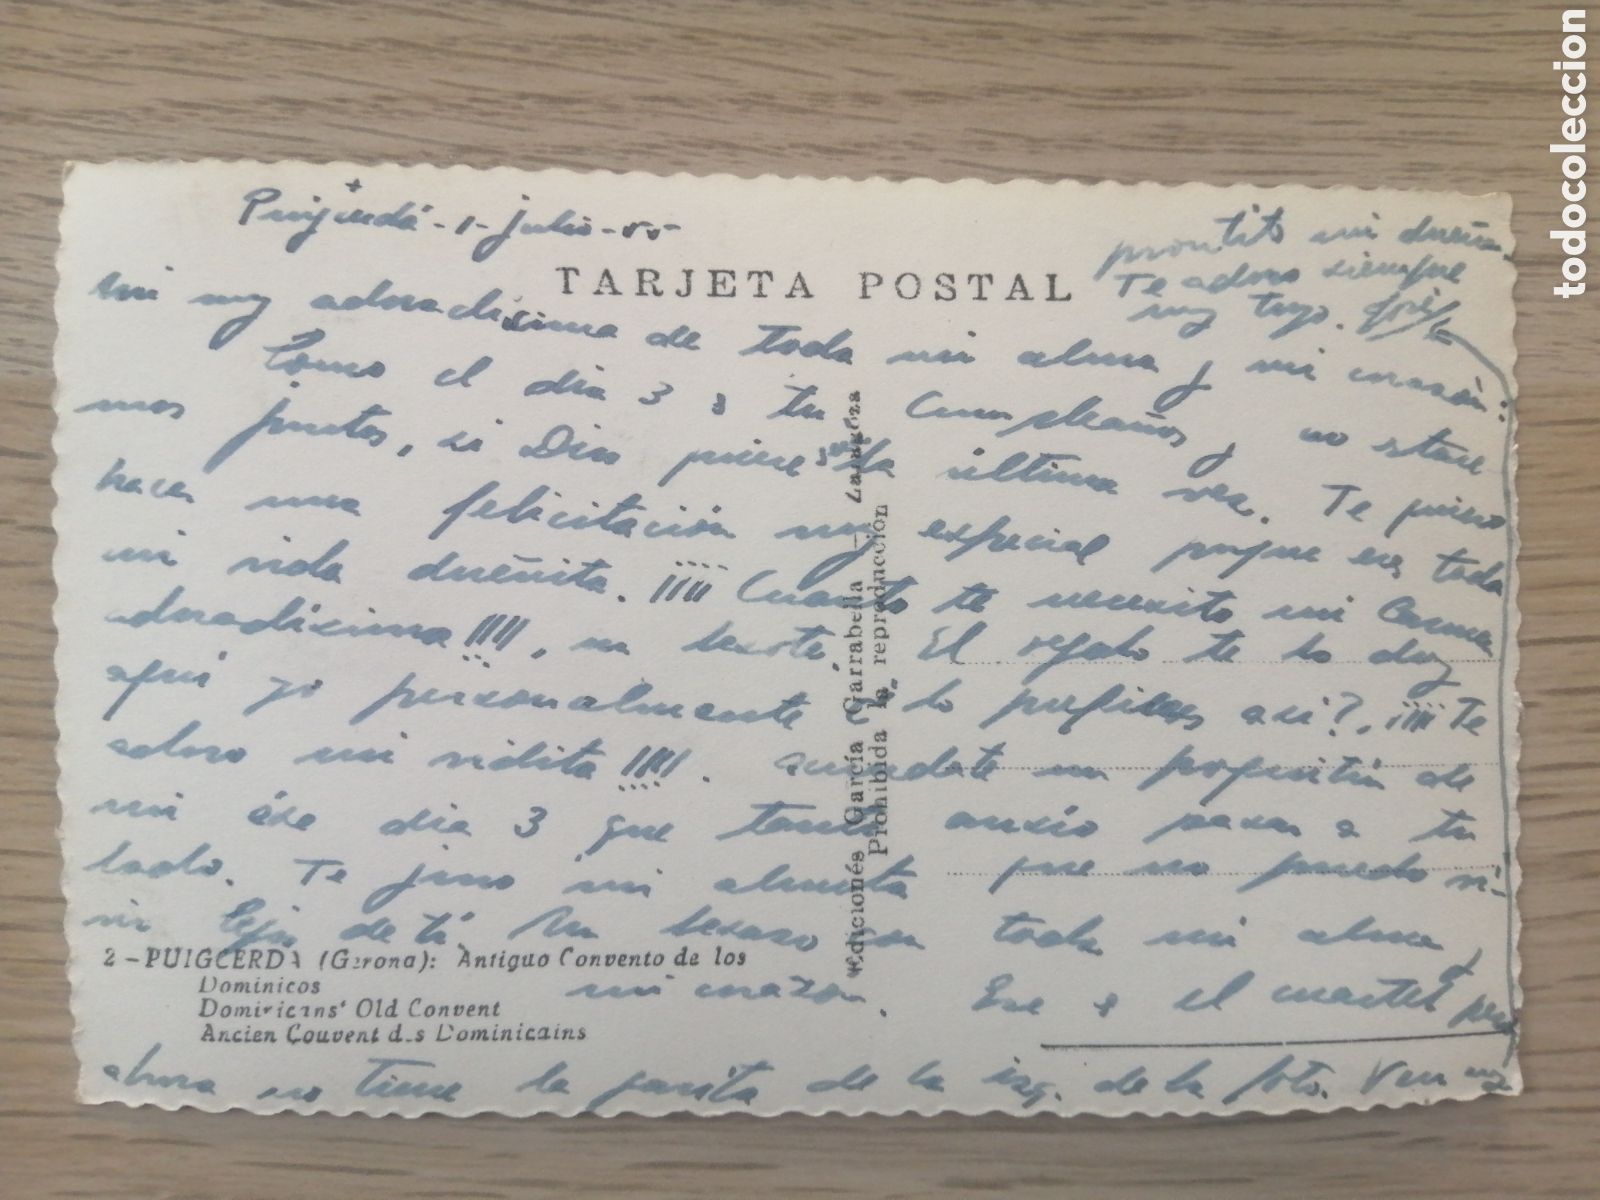 Puigcerdá - 1 - julio - 55 -
TARJETA POSTAL
Mi muy adoradísima de toda mi alma y mi corazón:
Como el día 3 es tu Cumpleaños, y no estare-
mos juntos, si Dios quiere será la última vez. Te quiero
hacer una felicitación muy especial porque eres toda
mi vida dueñita. ¡¡¡¡¡ Cuanto te necesito mi Carmen
adoradísima !!!!!, un besote. El regalo te lo doy
aquí yo personalmente lo prefieres así?, ¡¡¡¡¡ Te
adoro mi vidita !!!!!. Acuérdate un poquitín de
mi ése día 3 que tanto ansío pasar a tu
lado. Te juro mi almita que no puedo vi-
vir lejos de tí. Un besazo con toda mi alma y
mi corazón. Ese es el cuartel pero
ahora no tiene la garita de la izq. de la foto. Ven muy
prontito mi dueña.
Te adoro siempre
muy tuyo.
2 - PUIGCERDA (Gerona): Antiguo Convento de los
Dominicos
Dominicans' Old Convent
Ancien Couvent des Dominicains
Ediciones García Garrabella - Zaragoza
Prohibida la reproducción
todocoleccion